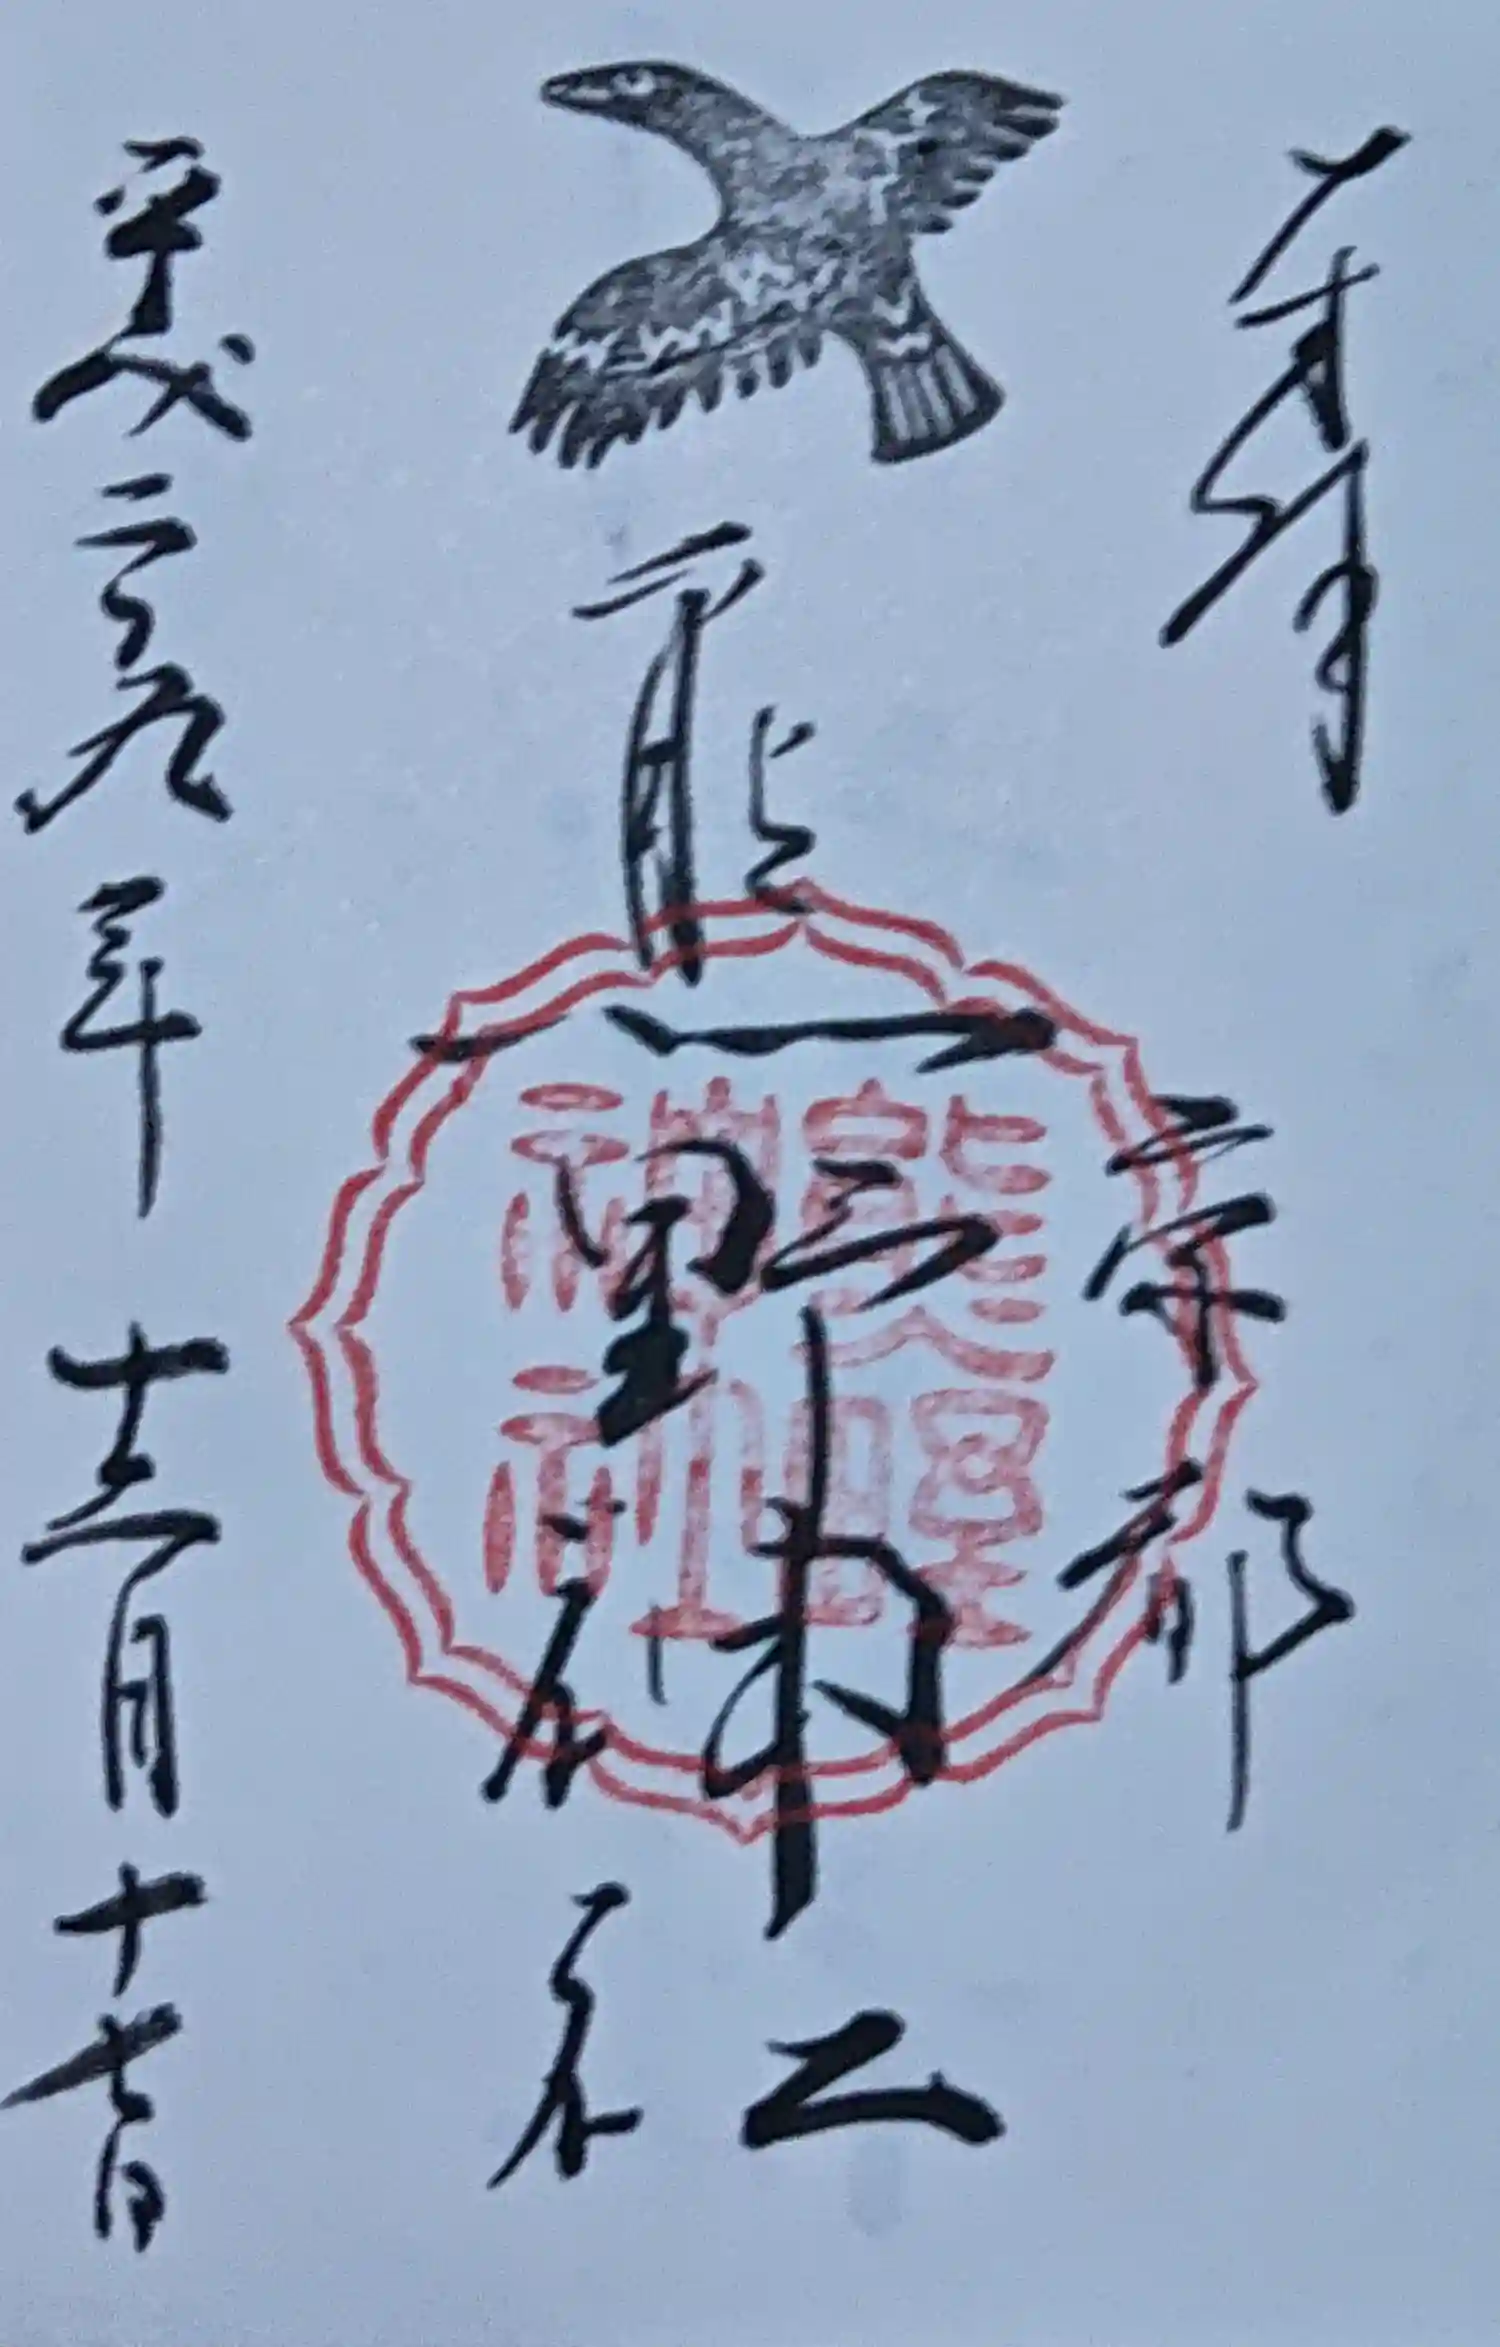 奉拝
京都
熊野神社
熊野
神社
平成二十九年十二月十七日